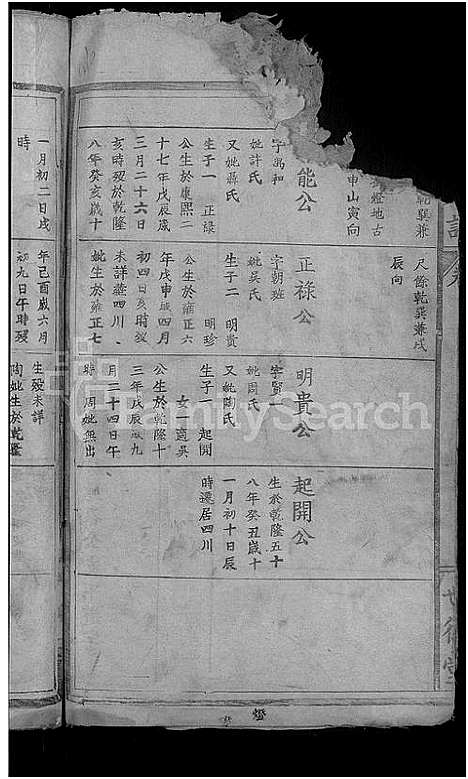 乾巽兼
燈地古
申山寅向
能公
字為和
妣許氏
又妣聶氏
生子一 正祿
公生於康熙二
十七年戊辰歲
三月二十六日
亥時歿於乾隆
八年癸亥歲十
一月初二日戌
時
尺餘乾巽兼戌
辰向
正祿公
字朝班
妣吳氏
生子二 明貴
明珍
公生於雍正六
年戊申歲四月
初四日亥時歿
未詳葬四川
妣生於雍正七
年己酉歲六月
初九日午時歿
明貴公
字賢一
妣周氏
又妣陶氏
生子一 起開
女一適吳
公生於乾隆十
三年戊辰歲九
月二十四日午
時 周妣無出
生歿未詳
陶妣生於乾隆
起開公
生於乾隆五十
八年癸丑歲十
一月初十日辰
時遷居四川
燈
FamilySearch